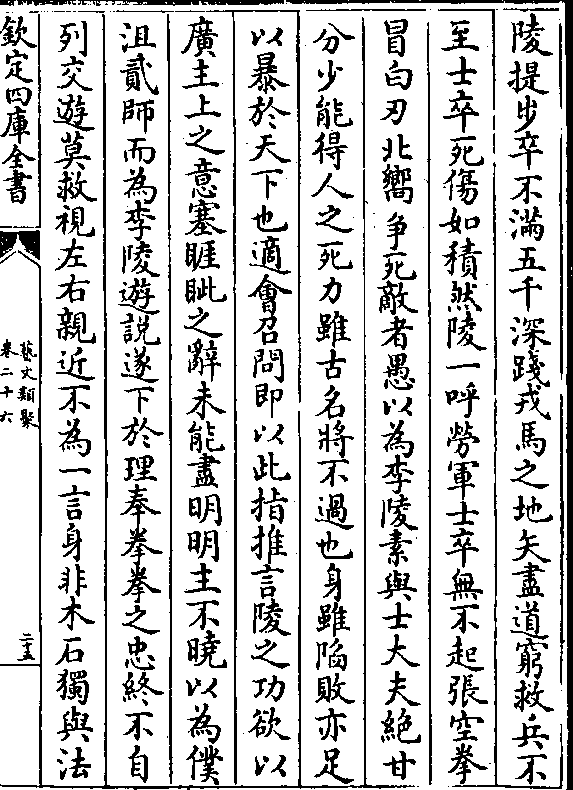 陵提步卒不滿五千深踐戎馬之地矢盡道窮救兵不
至士卒死傷如積然陵一呼勞軍士卒無不起張空拳
冒白刃北嚮争死敵者愚以為李陵素與士大夫絕甘
分少能得人之死力雖古名將不過也身雖陷敗亦足
以暴於天下也適會召問即以此指推言陵之功欲以
廣主上之意塞睚眦之辭未能盡明明主不曉以為僕
沮貳師而為李陵遊說遂下於理奉拳拳之忠終不自
列交遊莫救視左右親近不為一言身非木石獨與法
欽定四庫全書
藝文類聚
卷二十六
二十五